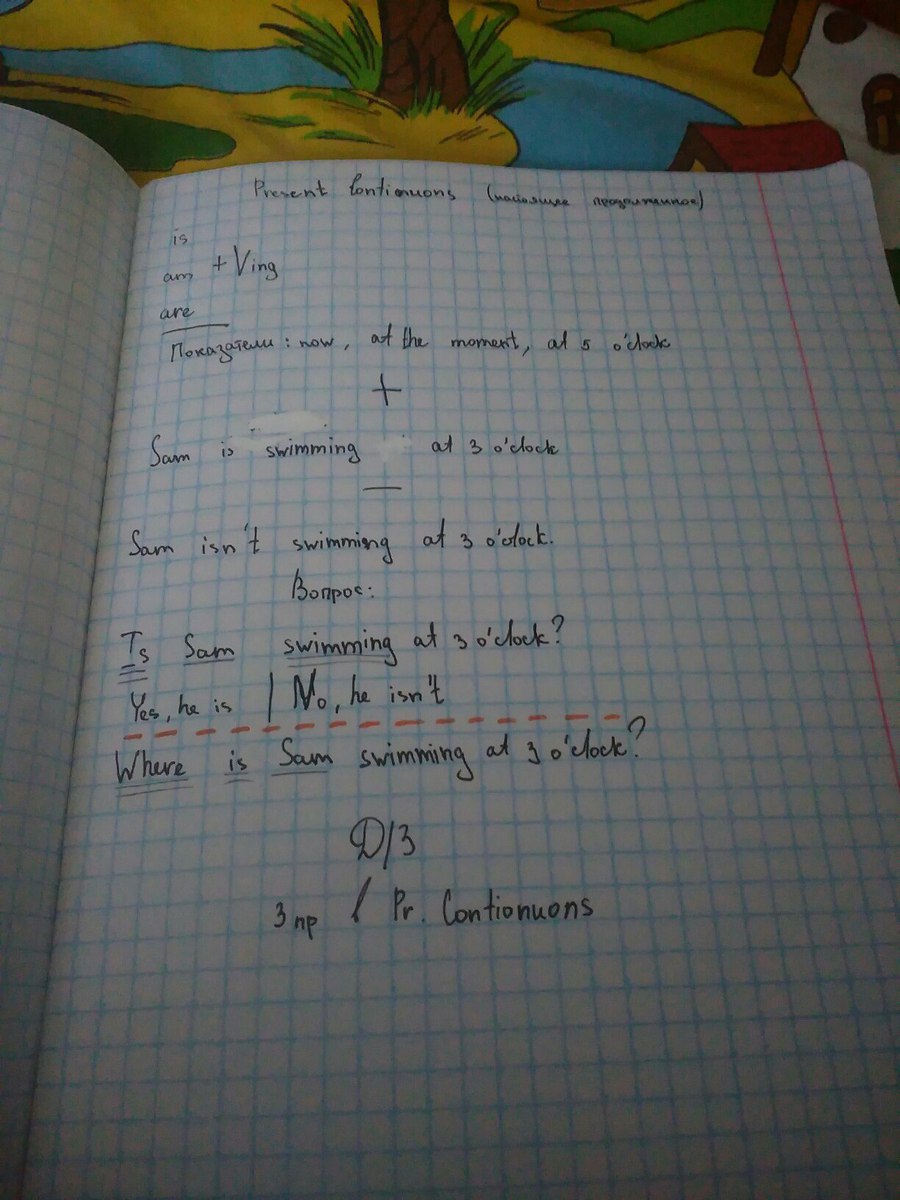 Present Contionuons (настоящее продолжанное)
is
am + Ving
are
Показатели: now, at the moment, at 5 o'clock
+
Sam is swimming at 3 o'clock
—
Sam isn't swimming at 3 o'clock.
Вопрос:
Is Sam swimming at 3 o'clock?
Yes, he is | No, he isn't
Where is Sam swimming at 3 o'clock?
Д/З
3 пр / Pr. Contionuons